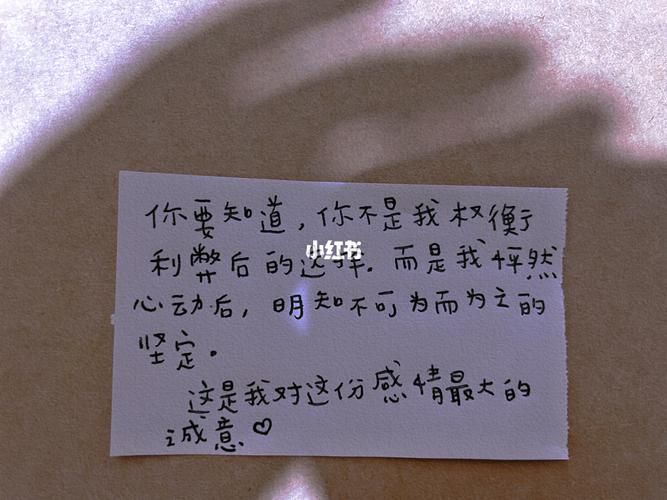 你要知道，你不是我权衡
利弊后的选择。而是我怦然
心动后，明知不可为而为之的
坚定。
这是我对这份感情最大的
诚意♡
小红书